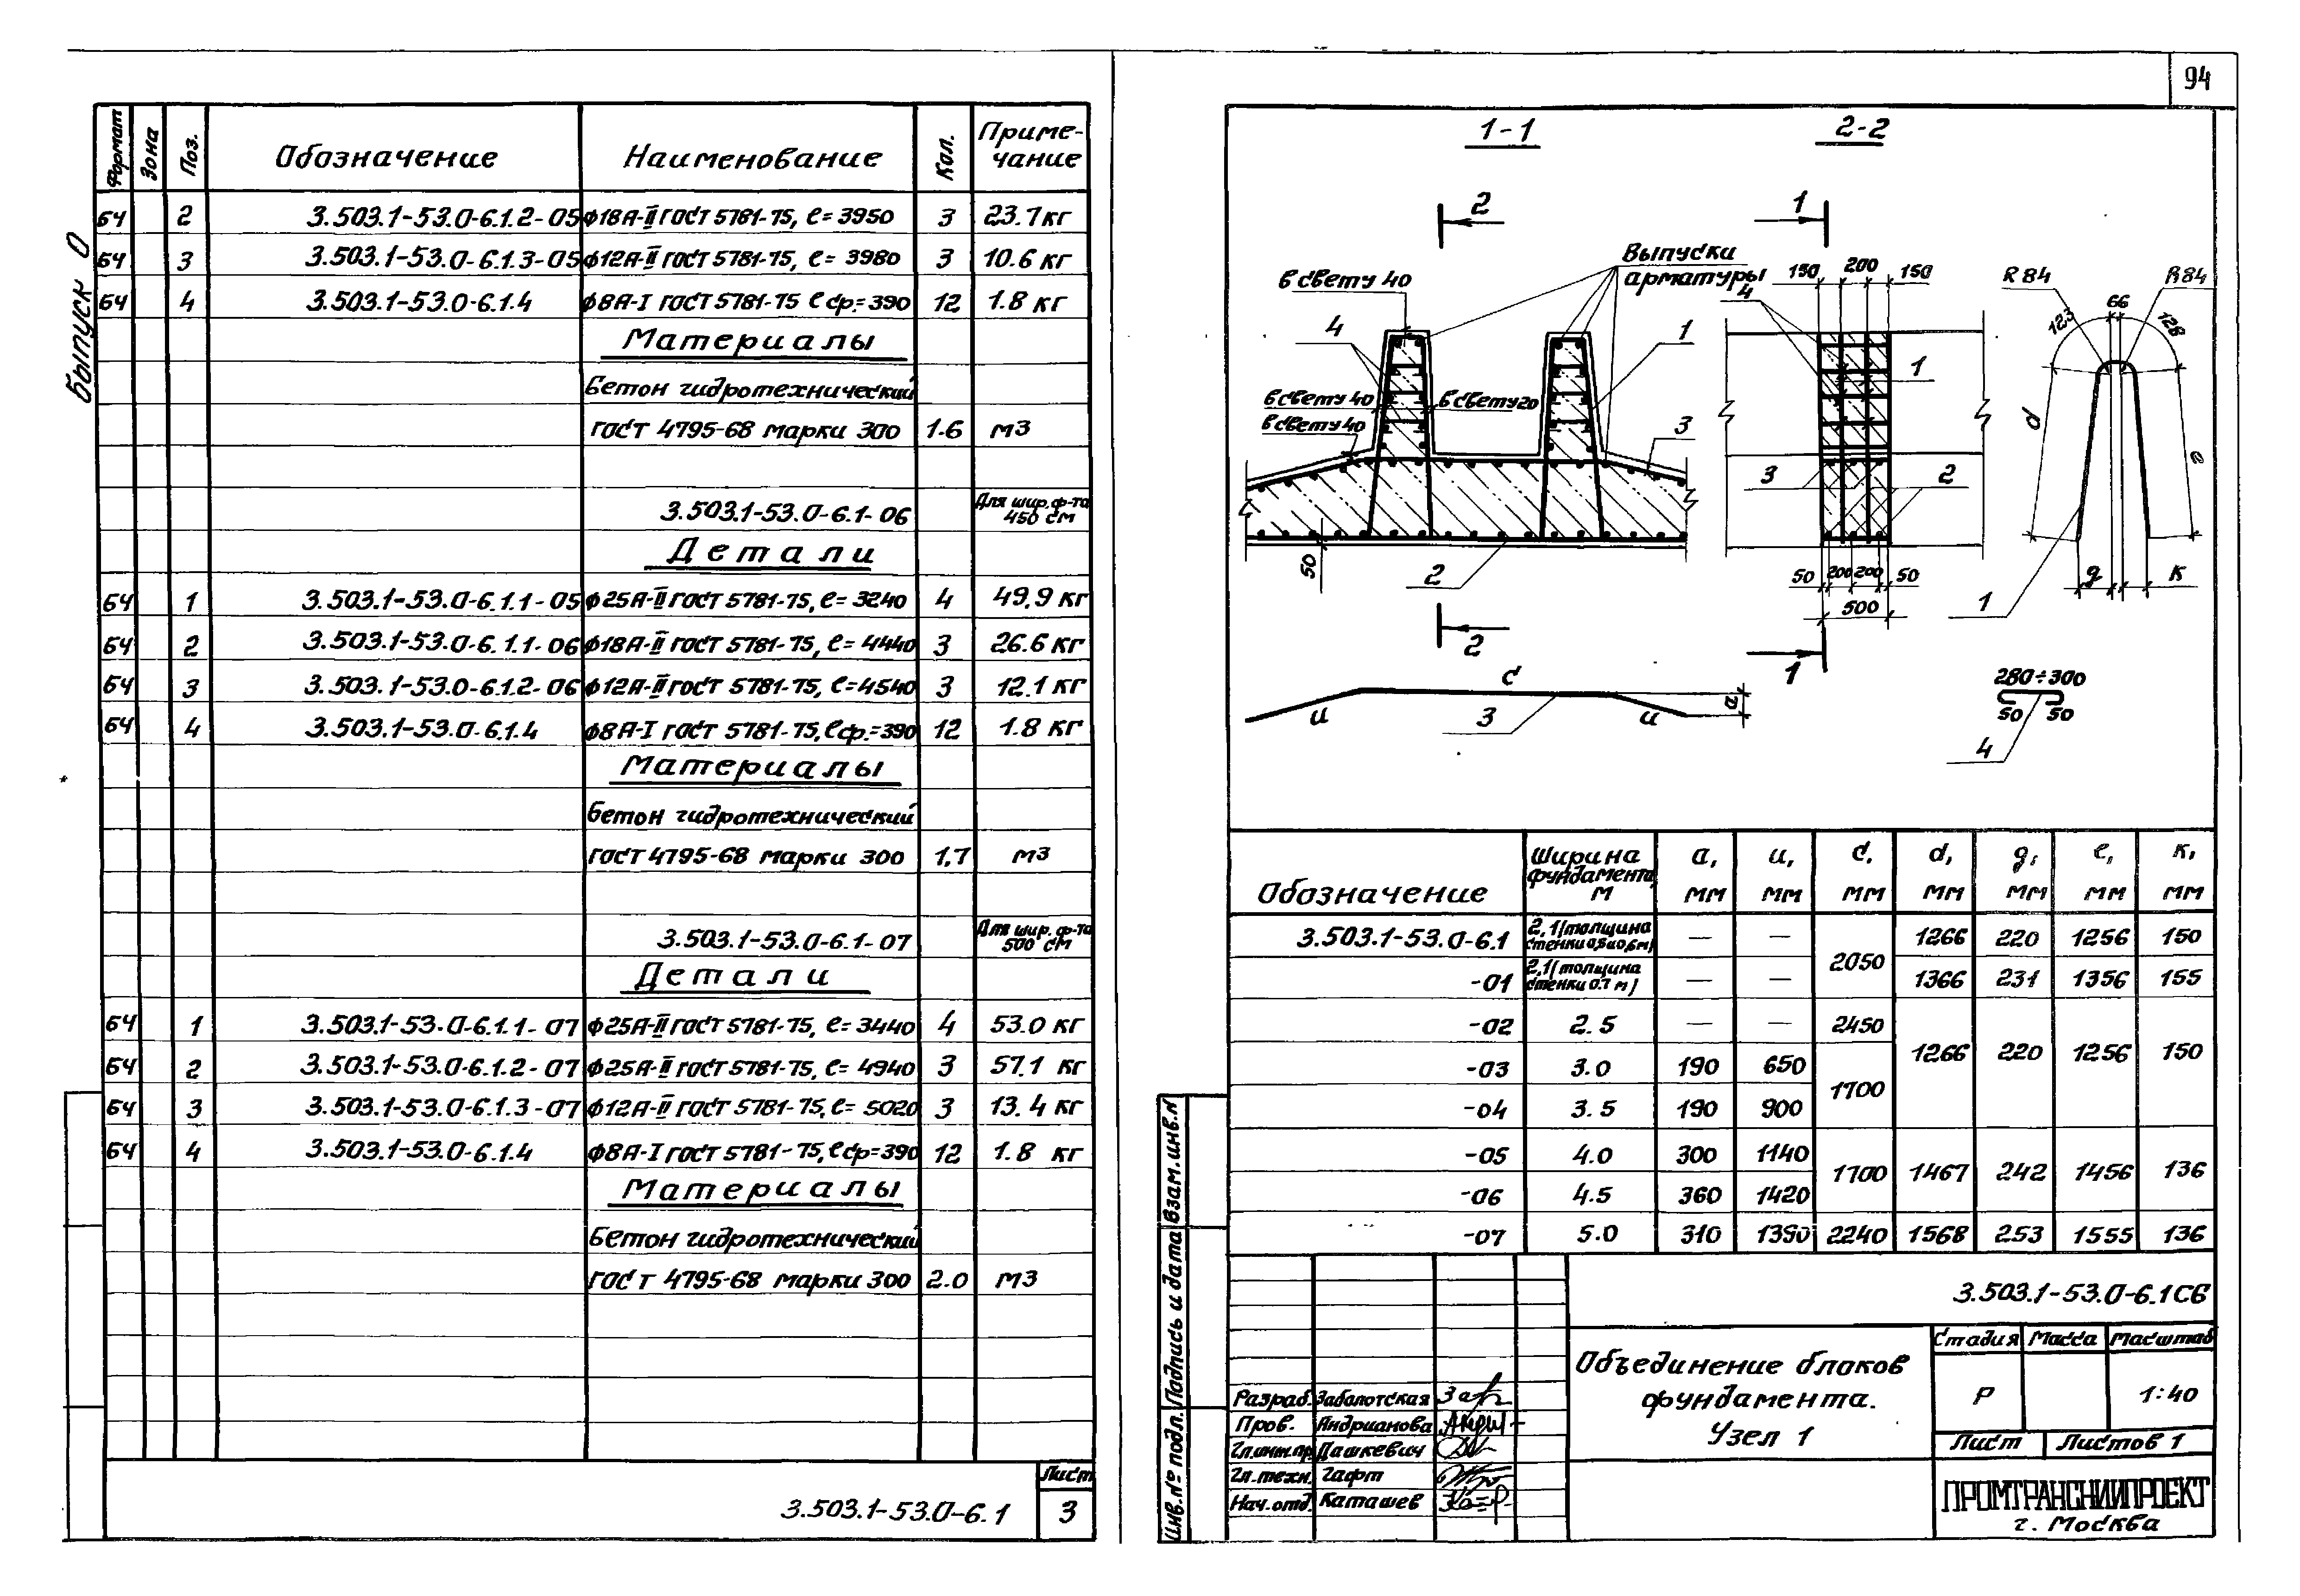 94
Выпуск 0
Формат Зона Поз. Обозначение Наименование Кол. Приме-
чание
БЧ 2 3.503.1-53.0-6.1.2-05 ф18А-II ГОСТ 5781-75, ℓ=3950 3 23.7 кг
БЧ 3 3.503.1-53.0-6.1.3-05 ф12А-II ГОСТ 5781-75, ℓ= 3980 3 10.6 кг
БЧ 4 3.503.1-53.0-6.1.4 ф8А-I ГОСТ 5781-75 ℓср=390 12 1.8 кг
Материалы
Бетон гидротехнический
ГОСТ 4795-68 марки 300 1.6 м3
3.503.1-53.0-6.1-06 Для шир. ф-та
450 см
Детали
БЧ 1 3.503.1-53.0-6.1.1-05 ф25А-II ГОСТ 5781-75, ℓ= 3240 4 49.9 кг
БЧ 2 3.503.1-53.0-6.1.1-06 ф18А-II ГОСТ 5781-75, ℓ= 4440 3 26.6 кг
БЧ 3 3.503.1-53.0-6.1.2-06 ф12А-II ГОСТ 5781-75, ℓ=4540 3 12.1 кг
БЧ 4 3.503.1-53.0-6.1.4 ф8А-I ГОСТ 5781-75, ℓср.=390 12 1.8 кг
Материалы
Бетон гидротехнический
ГОСТ 4795-68 марки 300 1,7 м3
3.503.1-53.0-6.1-07 Для шир. ф-та
500 см
Детали
БЧ 1 3.503.1-53.0-6.1.1-07 ф25А-II ГОСТ 5781-75, ℓ= 3440 4 53.0 кг
БЧ 2 3.503.1-53.0-6.1.2-07 ф25А-II ГОСТ 5781-75, ℓ= 4940 3 57.1 кг
БЧ 3 3.503.1-53.0-6.1.3-07 ф12А-II ГОСТ 5781-75, ℓ= 5020 3 13.4 кг
БЧ 4 3.503.1-53.0-6.1.4 ф8А-I ГОСТ 5781-75, ℓср=390 12 1.8 кг
Материалы
Бетон гидротехнический
ГОСТ 4795-68 марки 300 2.0 м3
3.503.1-53.0-6.1
Лист
3
1-1
2
Выпуски
арматуры
в свету 40
4
1
в свету 40
в свету 20
в свету 40
3
50
2
2
2-2
1
150 200 150
4
1
3
2
50 200 200 50
500
1
R 84
R 84
66
123
128
d
е
g
к
1
с
и
3
и
а
280÷300
50 50
4
Обозначение Ширина
фундамента,
м а,
мм и,
мм с,
мм d,
мм g,
мм е,
мм к,
мм
3.503.1-53.0-6.1 2,1(толщина
стенки 0,5 и 0,6 м) — — 2050 1266 220 1256 150
-01 2,1(толщина
стенки 0.7 м) — — 1366 231 1356 155
-02 2.5 — — 2450 1266 220 1256 150
-03 3.0 190 650 1700
-04 3.5 190 900
-05 4.0 300 1140 1700 1467 242 1456 136
-06 4.5 360 1420
-07 5.0 310 1390 2240 1568 253 1555 136
3.503.1-53.0-6.1СБ
Объединение блоков
фундамента.
Узел 1
Стадия Масса Масштаб
Р 1:40
Лист Листов 1
ПРОМТРАНСНИИПРОЕКТ
г. Москва
Разраб. Заболотская
Пров. Андрианова
Гл.инж.пр. Пашкевич
Гл.техн. Гафт
Нач.отд. Каташев
Инв.№ подл. Подпись и дата Взам.инв.№